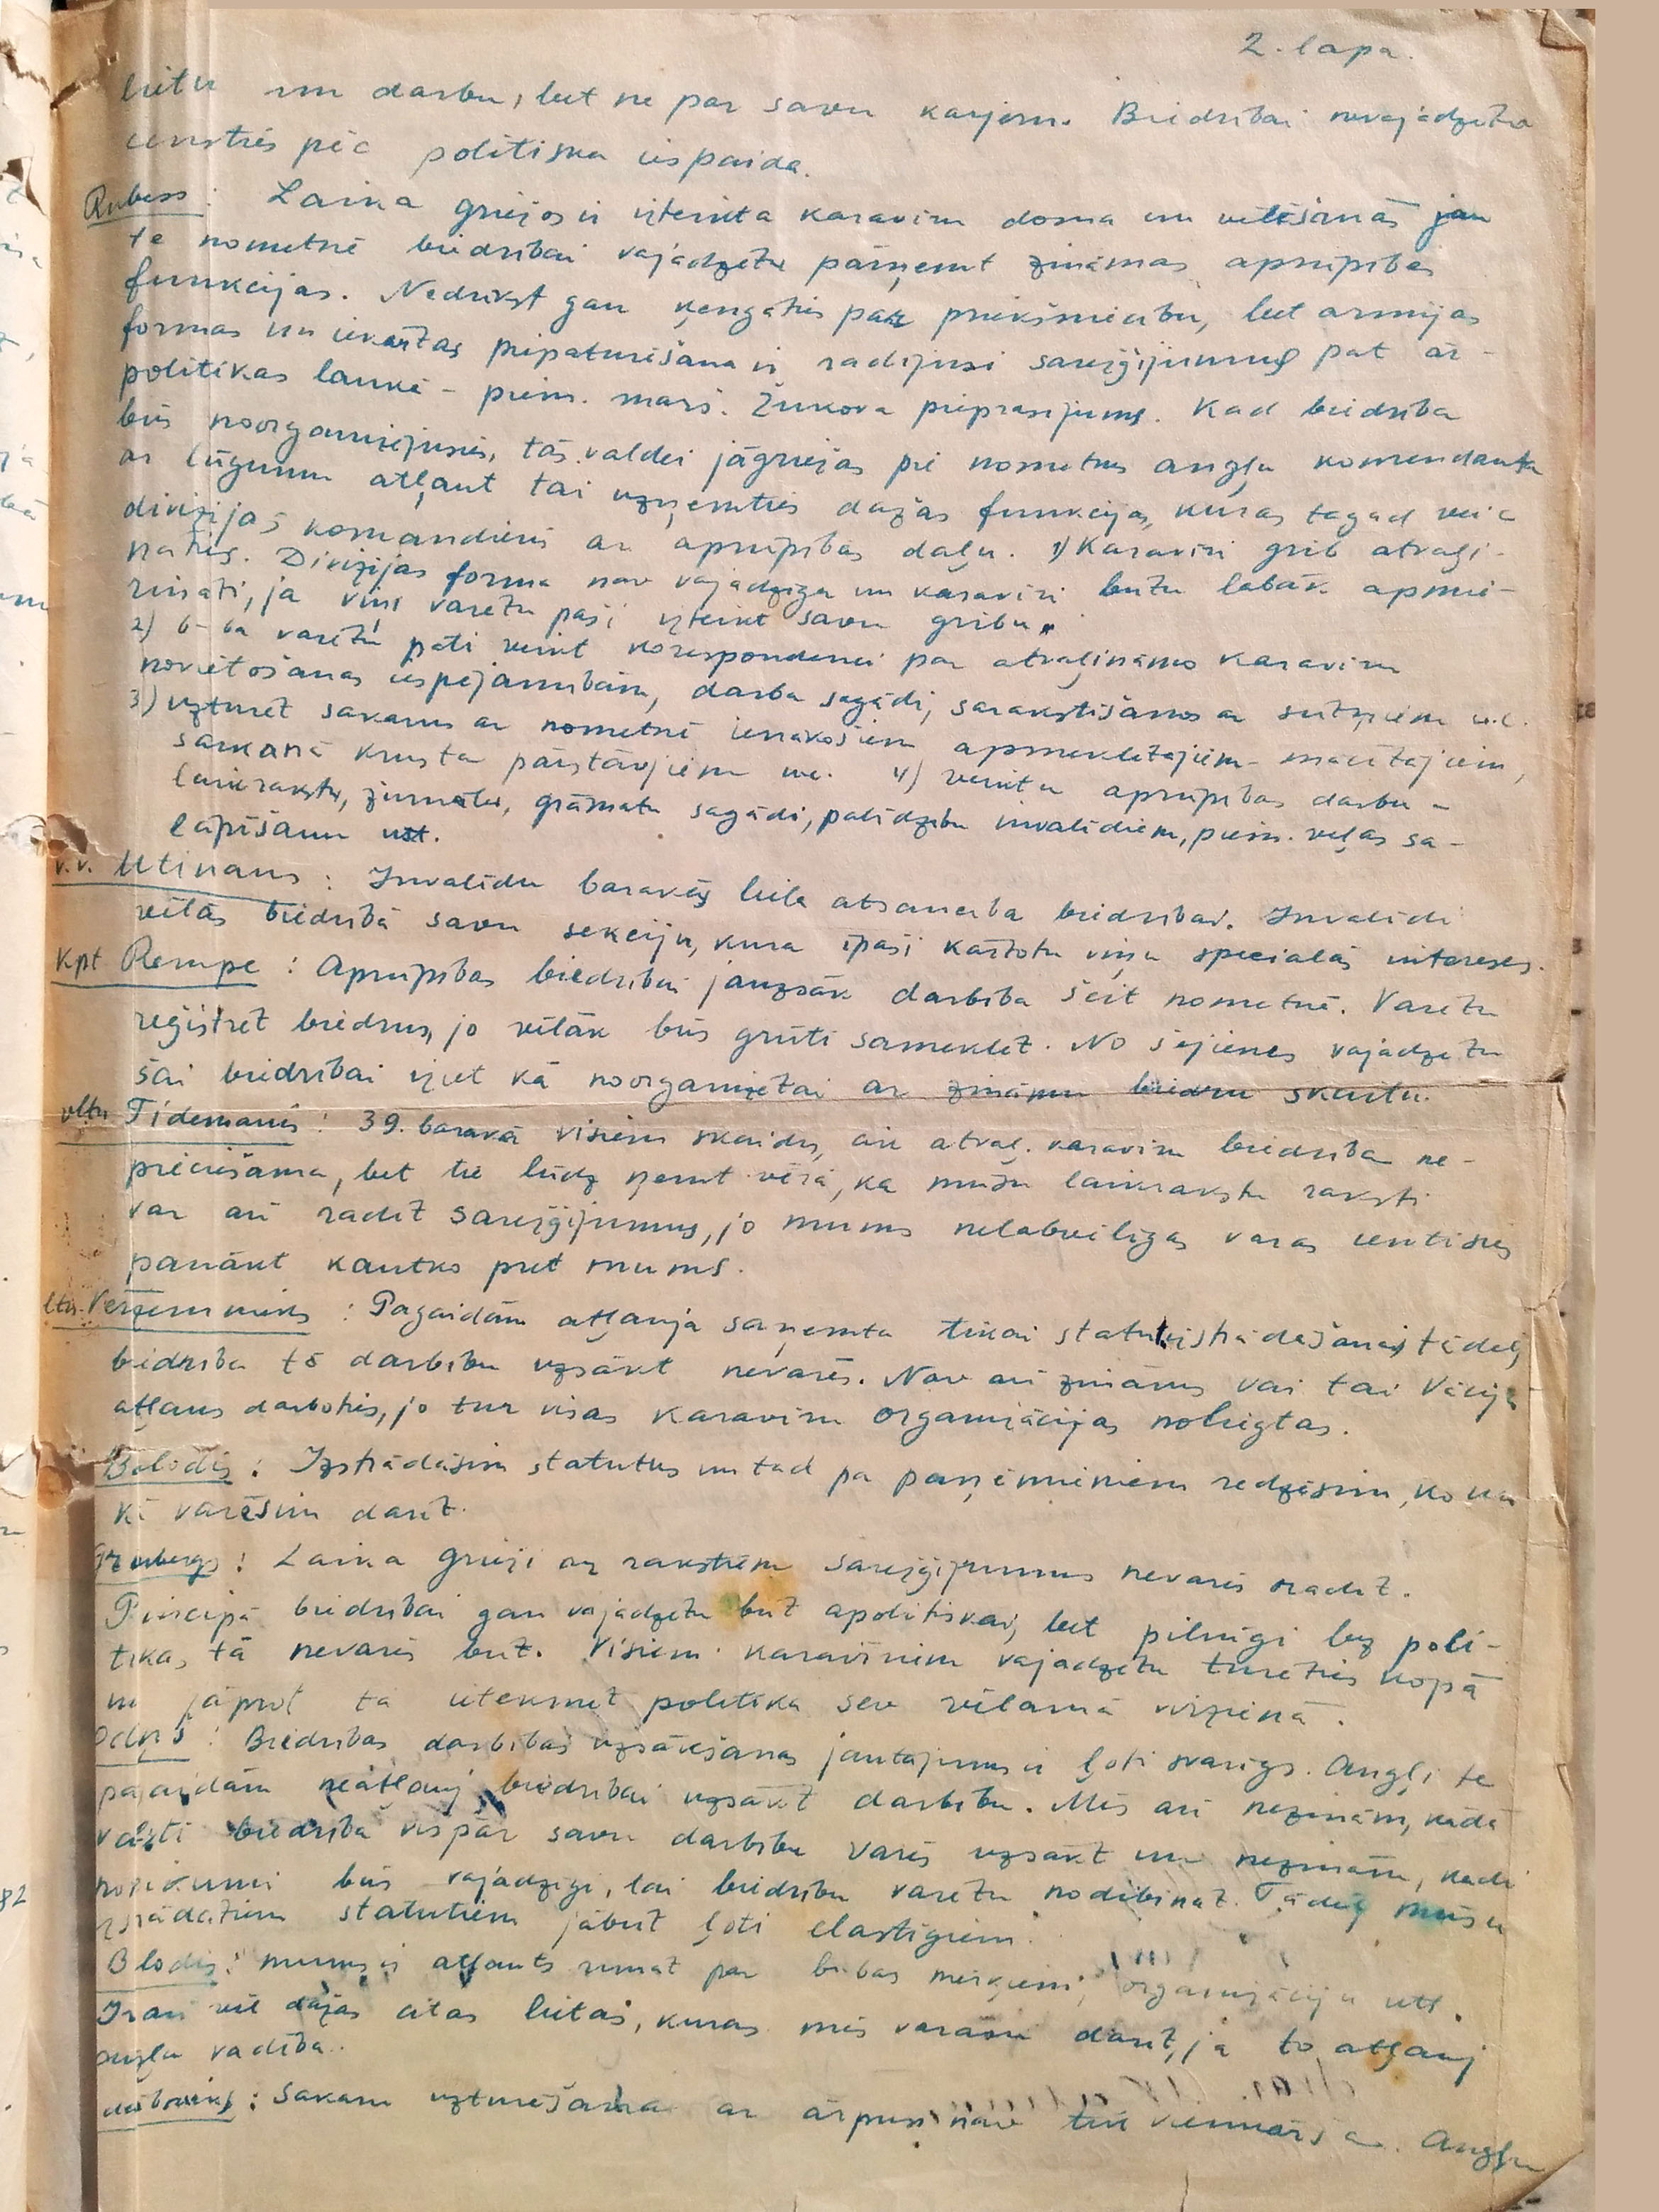 2. lapa.
lietu un darbu, bet ne par savu karjeru. Biedrībai nevajadzētu
censties pēc politiska iespaida.
Rubess: Laika griežos ir izteikta karavīru doma un vēlēšanās jau
te nometnē biedrībai vajadzētu pārņemt zināmas aprūpības
funkcijas. Nedrīkst gan ķengāties par priekšniecību, bet armijas
formas un iekārtas pieturēšana ir radījusi sarežģījumus pat ār-
politikas laukā - piem. marš. Žukova pieprasījums. Kad biedrība
būs noorganizējusies, tās valdei jāgriežas pie nometnes angļu komendanta
ar lūgumu atļaut tai uzņemties dažas funkcijas, kuras tagad veic
divizijas komandieris ar aprūpības daļu. 1) Karavīri grib atvaļi-
nāties. Divizijas forma nav vajadzīga un karavīri būtu labāk apmie-
rināti, ja viņi varētu paši izteikt savu gribu.
2) b-ba varētu pati veikt korespondenci par atvaļināmo karavīru
novietošanas iespējamībām, darba sagādi, sarakstīšanos ar sūtņiem u.c.
3) uzturēt sakarus ar nometnē ienākošiem apmeklētājiem - mācītājiem,
sarkanā krusta pārstāvjiem uc. 4) veiktu aprūpības darbu -
laikrakstu, žurnālu, grāmatu sagādi, palīdzību invalīdiem, piem. veļas sa-
lāpīšanu utt.
v.v. Utināns: Invalīdu barakās liela atsaucība biedrībai. Invalīdi
vēlas biedrībā savu sekciju, kura īpaši kārtotu viņu speciālās intereses.
Kpt Rempe: Aprūpības biedrībai jāuzsāk darbība šeit nometnē. Varētu
reģistrēt biedrus, jo vēlāk būs grūti sameklēt. No šejienes vajadzētu
šai biedrībai iziet kā noorganizētai ar zināmu biedru skaitu.
vltn Tīdemanis: 39. barakā visiem skaidrs, ka atvaļ. karavīru biedrība ne-
pieciešama, bet tie lūdz ņemt vērā, ka mūsu laikrakstu raksti
var arī radīt sarežģījumus, jo mums nelabvēlīgas varas centīsies
panākt kautko pret mums.
ltn. Verzemnieks: Pagaidām atļauja saņemta tikai statutu izstrādāšanai, tādēļ
biedrība to darbību uzsākt nevarēs. Nav arī zināms vai tai Vācijā
atļaus darboties, jo tur visas karavīru organizācijas noliegtas.
Balodis: Izstrādāsim statutus un tad pa paņēmieniem redzēsim, ko un
kā varēsim darīt.
Grinbergs: Laika grieži ar rakstiem sarežģījumus nevarēs radīt.
Principā biedrībai gan vajadzētu būt apolitiskai, bet pilnīgi bez poli-
tikas tā nevarēs būt. Visiem karavīriem vajadzētu turēties kopā
un jāprot tā ietekmēt politika sev vēlamā virzienā.
Odiņš: Biedrības darbības uzsākšanas jautājums ir ļoti svarīgs. Angļi te
pagaidām neatļauj biedrībai uzsākt darbību. Mēs arī nezinām, kādā
valstī biedrība vispār savu darbību varēs uzsākt un nezinām, kādi
noteikumi būs vajadzīgi, lai biedrību varētu nodibināt. Tādēļ mūsu
izstrādātiem statutiem jābūt ļoti elastīgiem.
Blodis: mums ir atļauts runāt par b-bas mērķiem, organizāciju utt.
Ir arī vēl dažas citas lietas, kuras mēs varam darīt, ja to atļauj
angļu vadība.
: Sakaru uzturēšana ar ārpusi nav tik vienkārša. Angļu